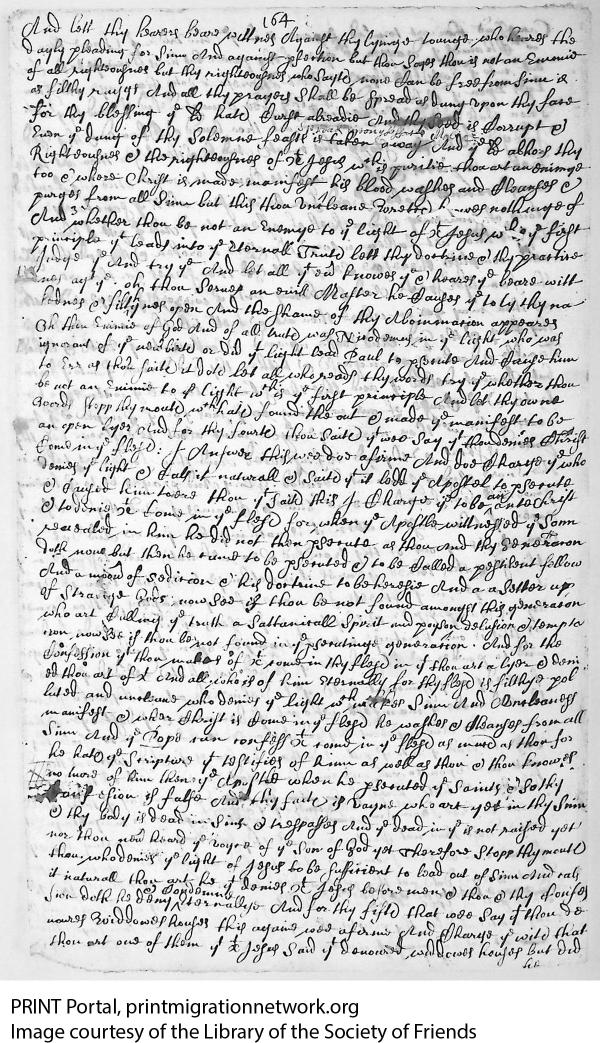 164
And lett thy hearers beare wittnes Against thy lyinge tounge, who heares the
dayly pleading for sinn And against pfection but thou sayes thou is not an Enimie
of all righteousnes but thy righteousnes who saith none can be free from sinn is
as filthy raggs And all thy prayers shall be spread as dung upon thy face
for thy blessing ye Ld hath Curst alreadie And thy seed is Corrupt &
Even ye dung of thy Solemne feasts is taken away And ye Ld abhors thy
Righteousnes & the righteousnes of X Jesus wch is puritie thou art an enimye
too & where Christ is made manifest his blood washes and Cleanses &
purges from all sinn but this thou uncleane knowes nothinge of
And 3 whether thou be not an Enemye to ye light of X Jesus wch is ye first
principle yt leads into ye Eternall Truth lett thy doctrine & thy practice
Judge yt And try ye And let all yt ever knowes ye & heares ye beare witt
nes agt ye. oh thou serves an evil Master he Causes ye to ly thy na
kednes & filthynes open And the shame of thy Abominnation appeares
Oh thou Enimie of God And of all truth was Nicodemus in ye light, who was
ignorant of ye new birth or did ye light lead Paul to psecute And Cause him
to Err as thou saith it doth let all who reads thy words try ye whether thou
be not an Enimie to ye light wch is ye first principle And let thy owne
words stopp thy mouth wch hath found the out & made ye manifest to be
an open lyer And for thy fourth thou saith yt wee say yt thou denies Christ
Come in ye flesh: I Answer this wee doe afirme And doe Charge ye who
denies ye light & Calls it naturall & saith yt it ledd ye Apostel to psecute
& to denie X Come in ye flesh for when ye Apostle witnessed ye Sonn
revealed in him he did not then psecute as thou And thy Generation
doth now but then he came to be psecuted & to be Called a pestilent fellow
And a moover of sedition & his doctrine to be heresie And a a setter up
of Strange Gods: now see if thou be not found amongst this generation
who art Calling ye truth a Sathanicall Spirit and poyson delusion & tempta
tion, now see if thou be not found in ye psecutinge generation. And for the
Confession yt thou makes of X come in thy flesh in yt thou art a lyer & deni
ed thou art of X And all who is of him Eternally for thy flesh is filthye pol
luted and uncleane who denies ye light wch makes Sinn And Uncleaness
manifest & wher Christ is Come in ye flesh he washes & Cleanses from all
Sinn And ye Pope can confess X come in ye flesh as much as thou for
he hath ye Scripture yt testifies of him as well as thou & thou knowes
no more of him then ye Apostle when he psecuted ye Saints & so thy
Confession is false And thy faith is vayne, who art yet in thy Sinn
& thy body is dead in Sins & trespasses And ye dead in ye is not raised yet
nor thou never heard ye voyce of ye Son of God yet Therefore Stopp thy mouth
thou who denies ye light of Jesus to be sufficient to lead out of Sinn And calls
it naturall thou art he yt denies X Jesus before men & thou & thy Confes
sion doth he deny & Condemne Eternallye And for thy fifth that wee Say yt thou de
voures Widdowes houses this againe wee afirme And Charge ye with that
thou art one of them yt X Jesus Said yt devoured widdowes houses but did
he
PRINT Portal, printmigrationnetwork.org
Image courtesy of the Library of the Society of Friends